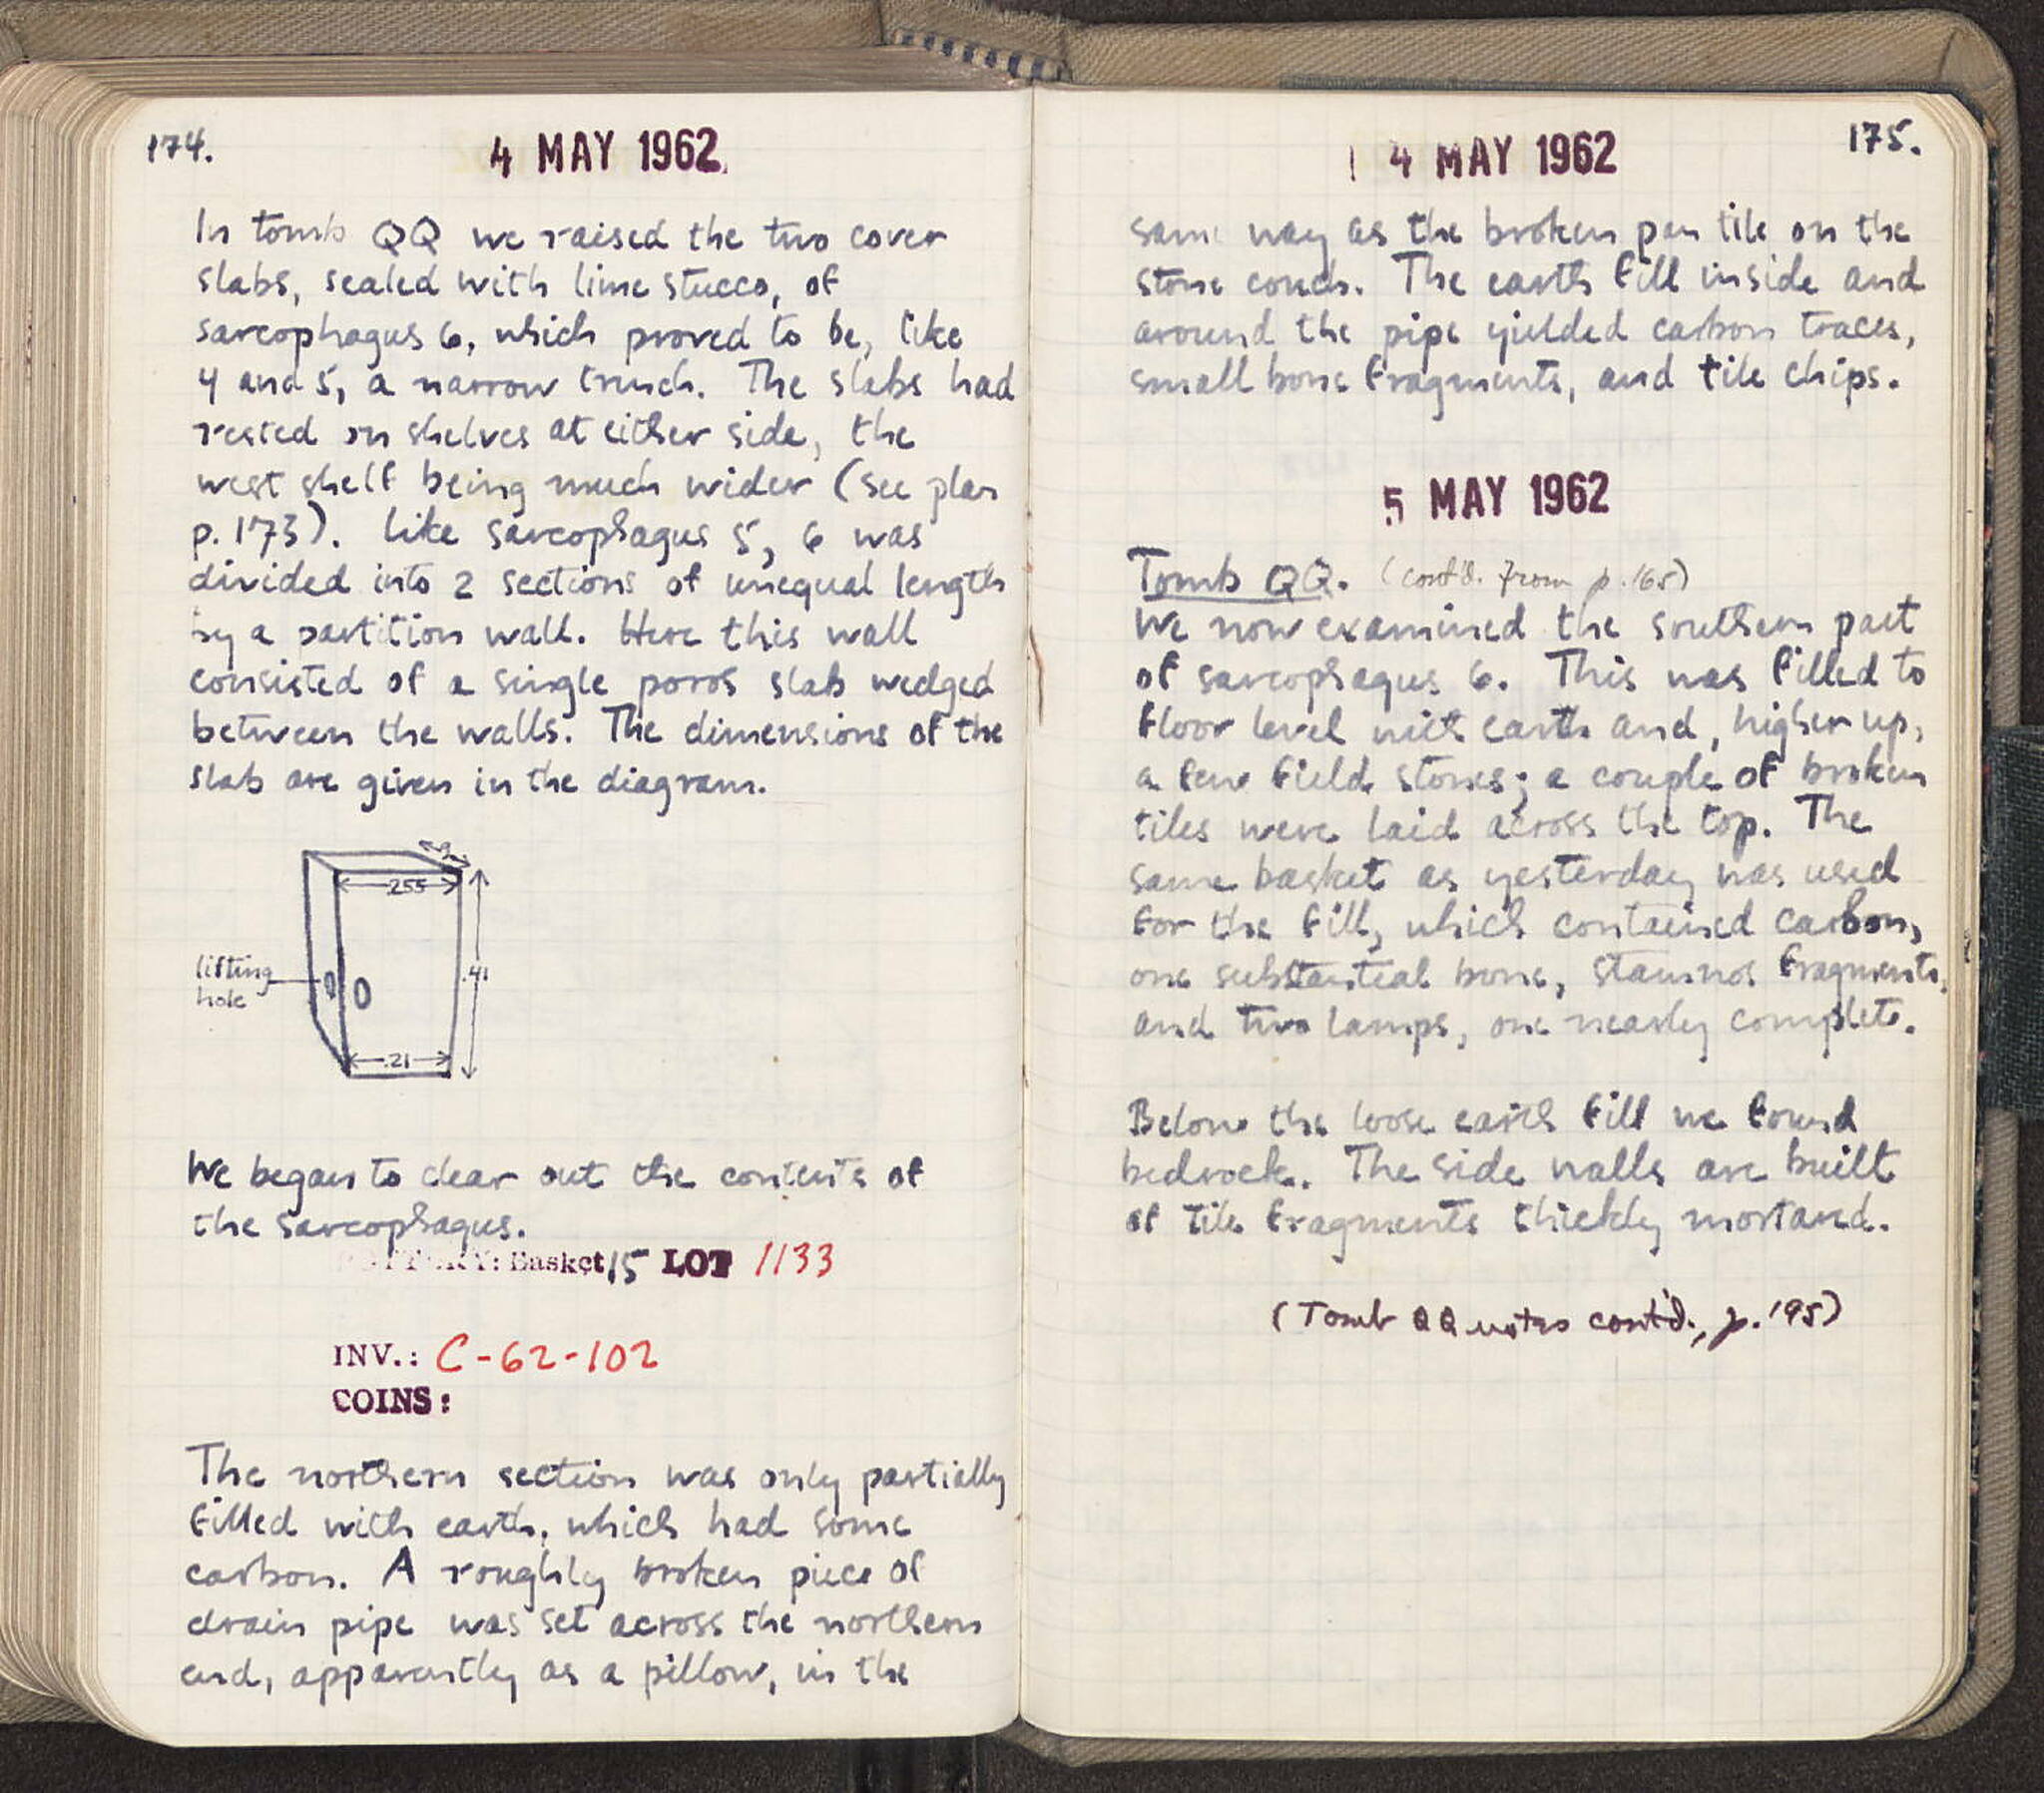 174.
4 MAY 1962
In tomb QQ we raised the two cover
slabs, sealed with lime stucco, of
sarcophagus 6, which proved to be, like
4 and 5, a narrow trench. The slabs had
rested on shelves at either side, the
west shelf being much wider (see plan
p. 173). Like sarcophagus 5, 6 was
divided into 2 sections of unequal length
by a partition wall. Here this wall
consisted of a single poros slab wedged
between the walls. The dimensions of the
slab are given in the diagram.
.255
lifting
hole
.41
.21
We began to clear out the contents of
the sarcophagus.
POTTERY: Basket 15 LOT 1133
INV.: C-62-102
COINS:
The northern section was only partially
filled with earth, which had some
carbon. A roughly broken piece of
drain pipe was set across the northern
end, apparently as a pillow, in the
4 MAY 1962
175.
same way as the broken pan tile on the
stone couch. The earth fill inside and
around the pipe yielded carbon traces,
small bone fragments, and tile chips.
5 MAY 1962
Tomb QQ. (cont'd. from p. 165)
We now examined the southern part
of sarcophagus 6. This was filled to
floor level with earth and, higher up,
a few field stones; a couple of broken
tiles were laid across the top. The
same basket as yesterday was used
for the fill, which contained carbon,
one substantial bone, stamnos fragments,
and two lamps, one nearly complete.
Below the loose earth fill we found
bedrock. The side walls are built
of tile fragments thickly mortared.
(Tomb QQ notes cont'd., p. 195)